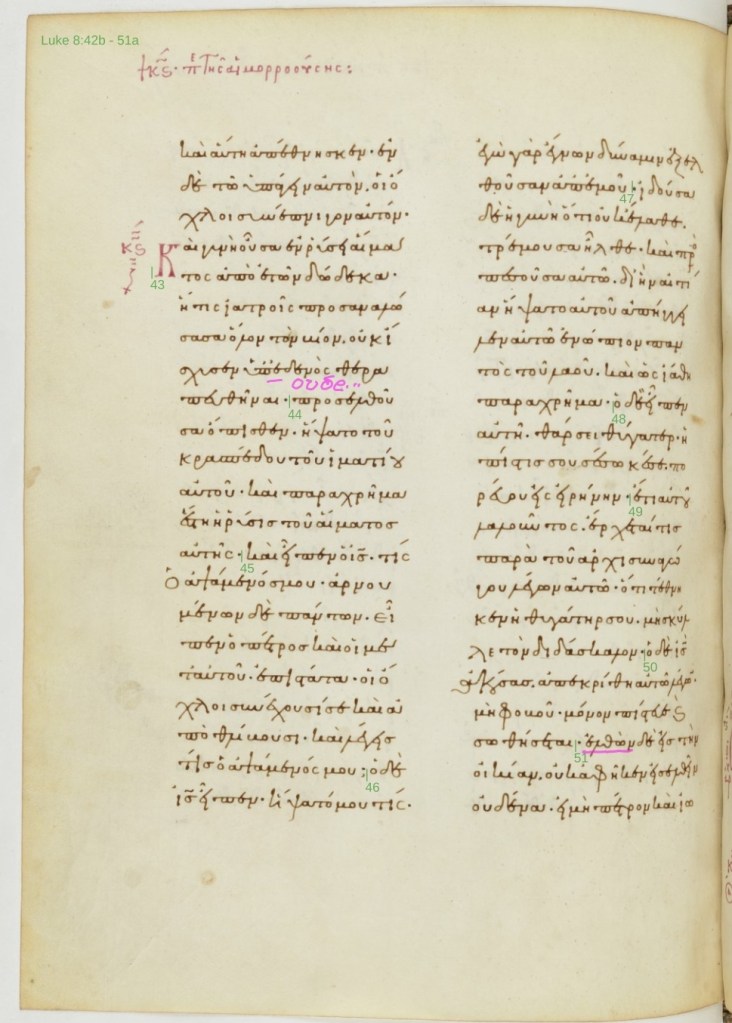 Luke 8:42b - 51a
κϛ· π Της αἱμορροούσης:
καὶ αὐτὴ ἀπέθνησκεν· ἐν
δὲ τῶ ὑπάγειν αὐτὸν. οἱ ὄ
χλοι συνέπνιγον αὐτόν·
κϛ Καὶ γυνὴ οὖσα ἐν ρύσει αἵμα
43 τος ἀπὸ ἐτῶν δώδεκα·
ἥτις ἰατροῖς προσαναλώ
σασα ὅλον τὸν βίον. οὐκ ἴ
σχυσεν ὑπ' οὐδενὸς θερα
ουδε..
πευθῆναι· 44 προσελθοῦ
σα ὄπισθεν. ἥψατο τοῦ
κρασπέδου τοῦ ἱματίου
αὐτοῦ· καὶ παραχρῆμα
ἔστη ἡ ρύσις τοῦ αἵματος
αὐτῆς· 45 καὶ εἶπεν ὁ ις· τίς
ὁ ἁψάμενός μου· ἀρνου
μένων δὲ πάντων. εἶ
πεν ὁ πέτρος καὶ οἱ με
τ' αὐτοῦ· ἐπιστάτα· οἱ ὄ
χλοι συνέχουσί σε καὶ ἀ
ποθλίβουσι· καὶ λέγεις
τίς ὁ ἁψάμενός μου· 46 ὁ δὲ
ις εἶπεν· ἥψατό μου τίς·
ἐγὼ γὰρ ἔγνων δύναμιν ἐξελ
θοῦσαν ἀπ' ἐμοῦ· 47 ἰδοῦσα
δὲ ἡ γυνὴ ὅτι οὐκ ἔλαθε.
τρέμουσα ἦλθε· καὶ προσ
πεσοῦσα αὐτῶ. δι' ἣν αἰτί
αν ἥψατο αὐτοῦ ἀπήγγει
λεν αὐτῶ ἐνώπιον παν
τὸς τοῦ λαοῦ. καὶ ὡς ἰάθη
παραχρῆμα· 48 ὁ δὲ εἶπεν
αὐτῆ. θάρσει θύγατερ· ἡ
πίστις σου σέσωκέ σε· πο
ρεύου εἰς εἰρήνην· 49 ἔτι αὐτοῦ
λαλοῦντος. ἔρχεταί τις
παρὰ τοῦ ἀρχισυναγώ
γου λέγων αὐτῶ· ὅτι τέθνη
κεν ἡ θυγάτηρ σου. μὴ σκύλ
λε τὸν διδάσκαλον· 50 ὁ δὲ ις
ἀκούσας. ἀπεκρίθη αὐτῶ λέγων·
μὴ φοβοῦ· μόνον πίστευε καὶ
σωθήσεται· 51 ἐλθὼν δὲ εἰς τὴν
οἰκίαν. οὐκ ἀφῆκεν εἰσελθεῖν
οὐδένα. εἰ μὴ πέτρον καὶ ἰω